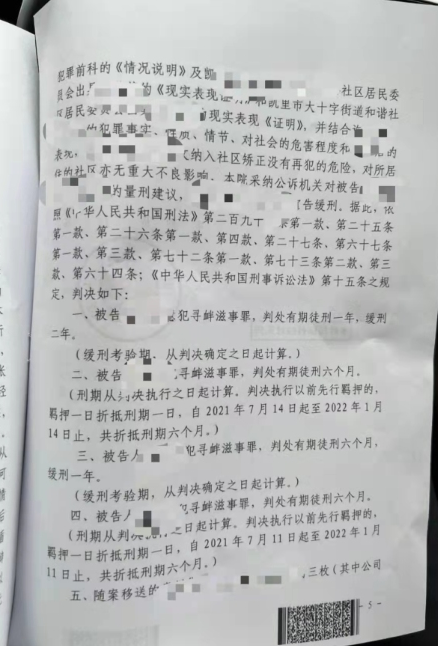 犯罪前科的《情况说明》及凯 社区居民委
员会出 的《现实表现证明》和凯里市大十字街道和谐社
区居民委 《现实表现《证明》,并结合
的犯罪事实、性质、情节、对社会的危害程度和 的
表现, 纳入社区矫正没有再犯的危险,对所居
住的社区亦无重大不良影响。本院采纳公诉机关对被告
的量刑建议, 告缓刑。据此,依
照《中华人民共和国刑法》第二百九十 条第一款、第二十五条
第一款、第二十六条第一款、第四款、第二十七条、第六十七条
第一款、第三款、第七十二条第一款、第七十三条第二款、第三
款、第六十四条;《中华人民共和国刑事诉讼法》第十五条之规
定,判决如下:
一、被告 犯寻衅滋事罪,判处有期徒刑一年,缓刑
二年。
(缓刑考验期,从判决确定之日起计算。)
二、被告 寻衅滋事罪,判处有期徒刑六个月。
(刑期从判决执行之日起计算。判决执行以前先行羁押的,
羁押一日折抵刑期一日,自2021年7月14日起至2022年1月
14日止,共折抵刑期六个月。)
三、被告人 犯寻衅滋事罪,判处有期徒刑六个月,
缓刑一年。
(缓刑考验期,从判决确定之日起计算。)
四、被告人 犯寻衅滋事罪,判处有期徒刑六个月。
(刑期从判决执行之日起计算。判决执行以前先行羁押的,
羁押一日折抵刑期一日,自2021年7月11日起至2022年1月
11日止,共折抵刑期六个月。)
五、随案移送的 三枚(其中公司
- 5 -